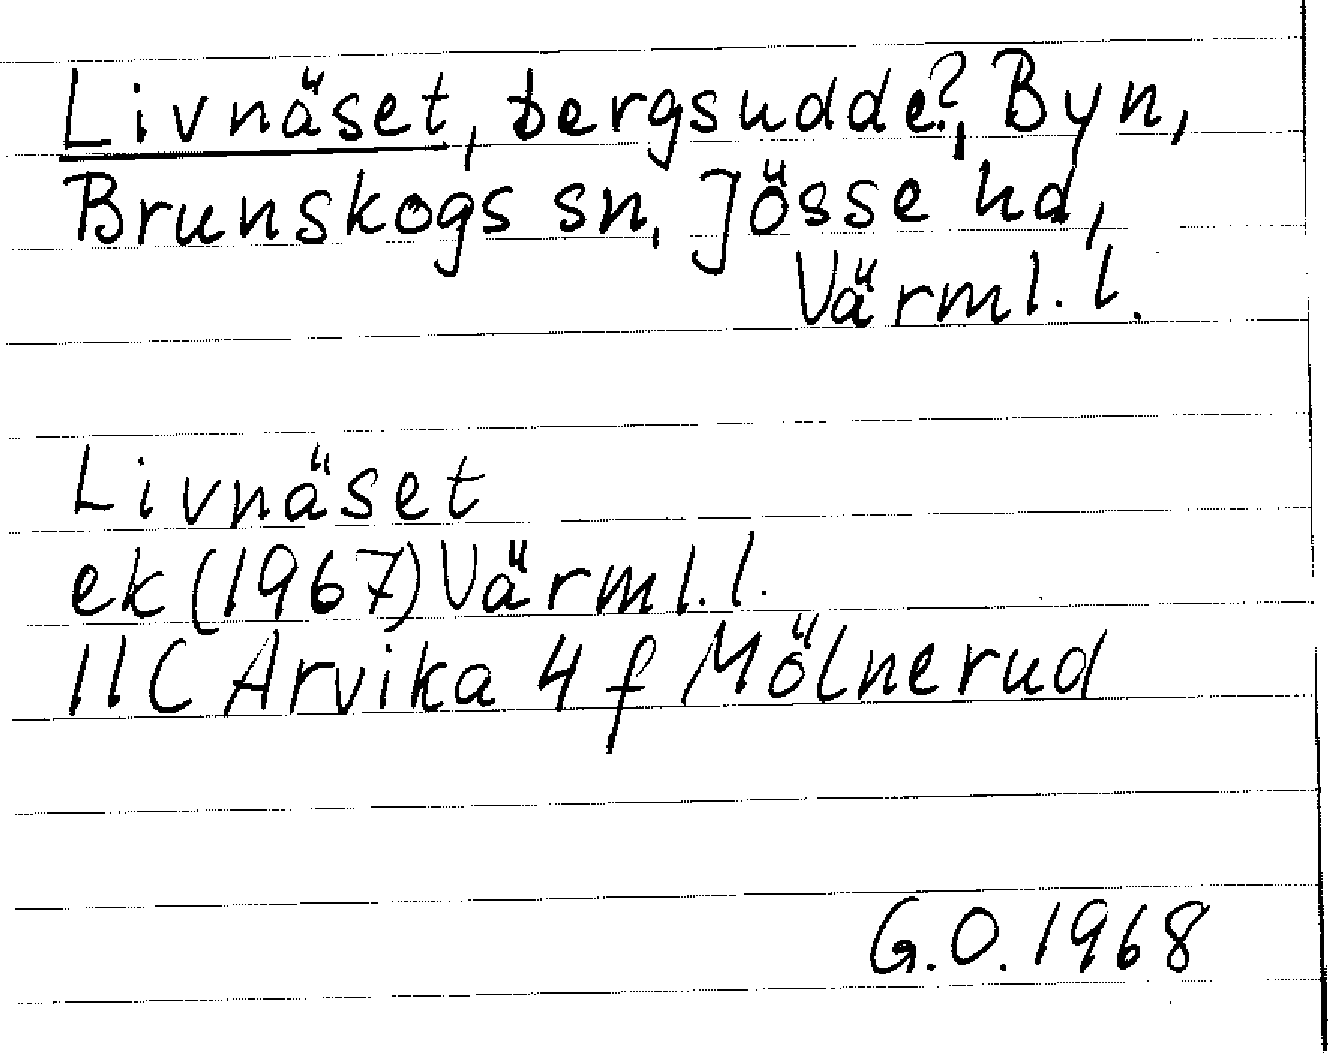 Livnäset, bergsudde?, Byn,
Brunskogs sn, Jösse hd,
Värml. l.
Livnäset
ek (1967) Värml. l.
11C Arvika 4 f Mölnerud
G.O. 1968